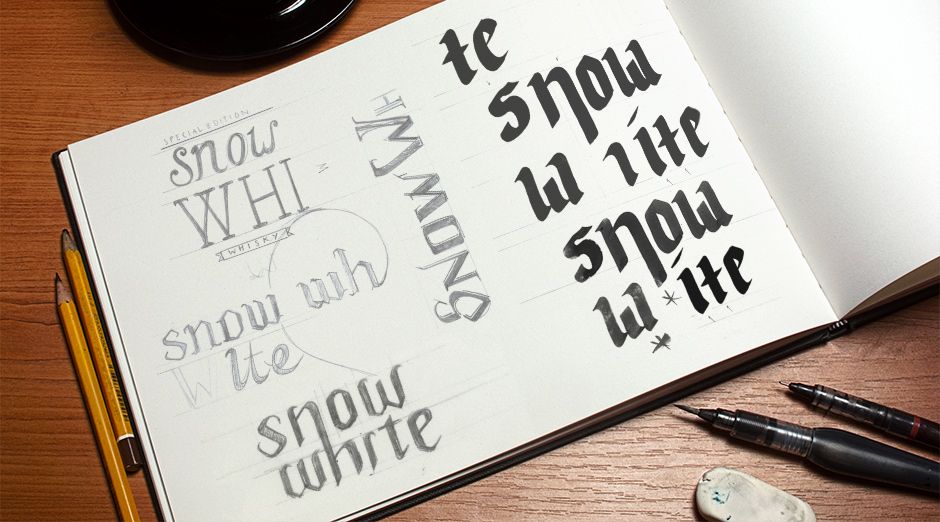 SPECIAL EDITION
snow
WHI
WHISKY
snow wh
W ite
snow
white
SNOW W
HI
te
snow
w ite
snow
w ite